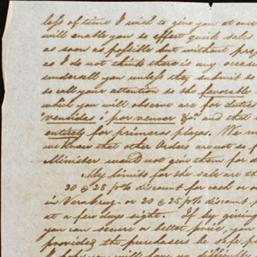 less of time I wish to give you at once
will enable you to effect quick sales
as soon as possible but without prej
as I do not think there is any occasi
undersell you unless they submit to
to call your attention to the favorable
which you will observe are for duties
"vencidas i por vencer" &c and that
entirely for primeras pagas. We
we know that other Orders are not so f
Minister would not give them for d
My limits for the sale are th
20 @ 25 p% discount for cash or
in Veracruz - or 20 @ 25 p% discount
at a few days sight. If by giving
you can secure a better price, you
provided the purchasers be safe p
I hope you will have no difficulty